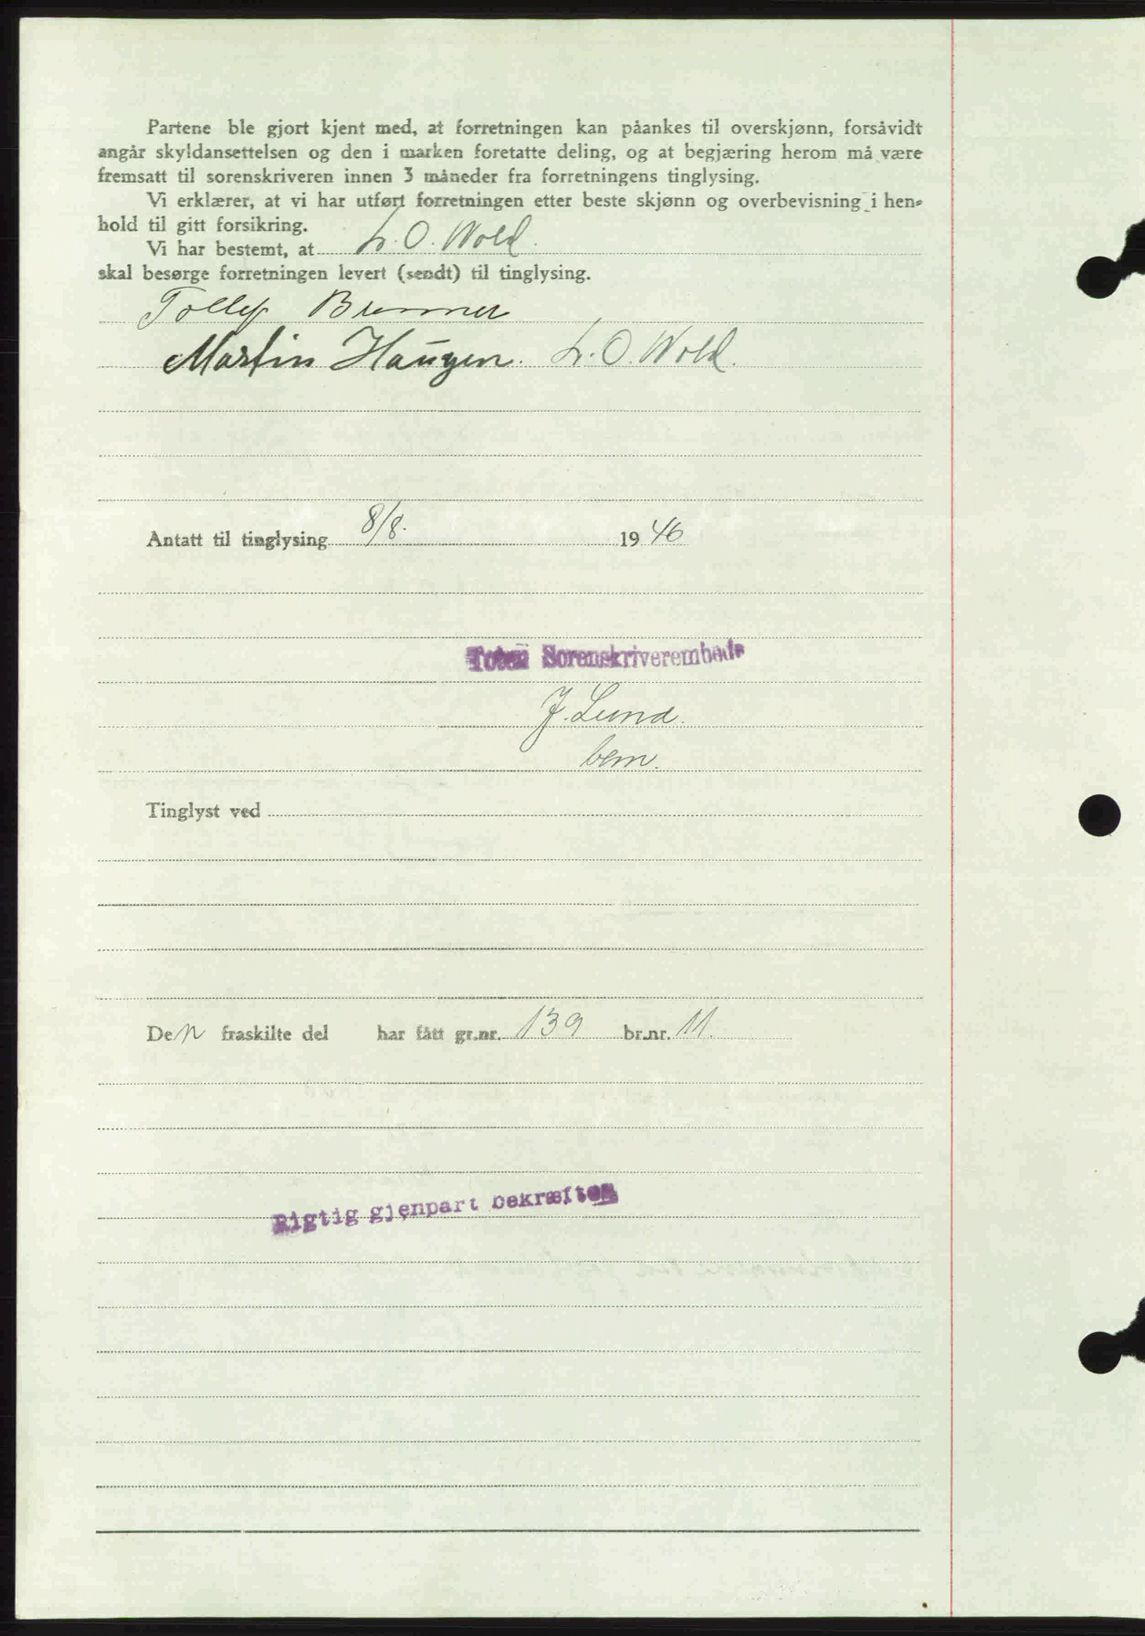 Partene ble gjort kjent med, at forretningen kan påankes til overskjønn, forsåvidt
angår skyldansettelsen og den i marken foretatte deling, og at begjæring herom må være
fremsatt til sorenskriveren innen 3 måneder fra forretningens tinglysing.
Vi erklærer, at vi har utført forretningen etter beste skjønn og overbevisning i hen-
hold til gitt forsikring.
Vi har bestemt, at L. O. Wold.
skal besørge forretningen levert (sendt) til tinglysing.
Tollef
Martin Haugen. L. O. Wold.
Antatt til tinglysing 8/8. 1946
Toten Sorenskriverembede
J. Lund.
bem.
Tinglyst ved
Den fraskilte del har fått gr.nr. 139 br.nr. 11.
Rigtig gjenpart bekræftes